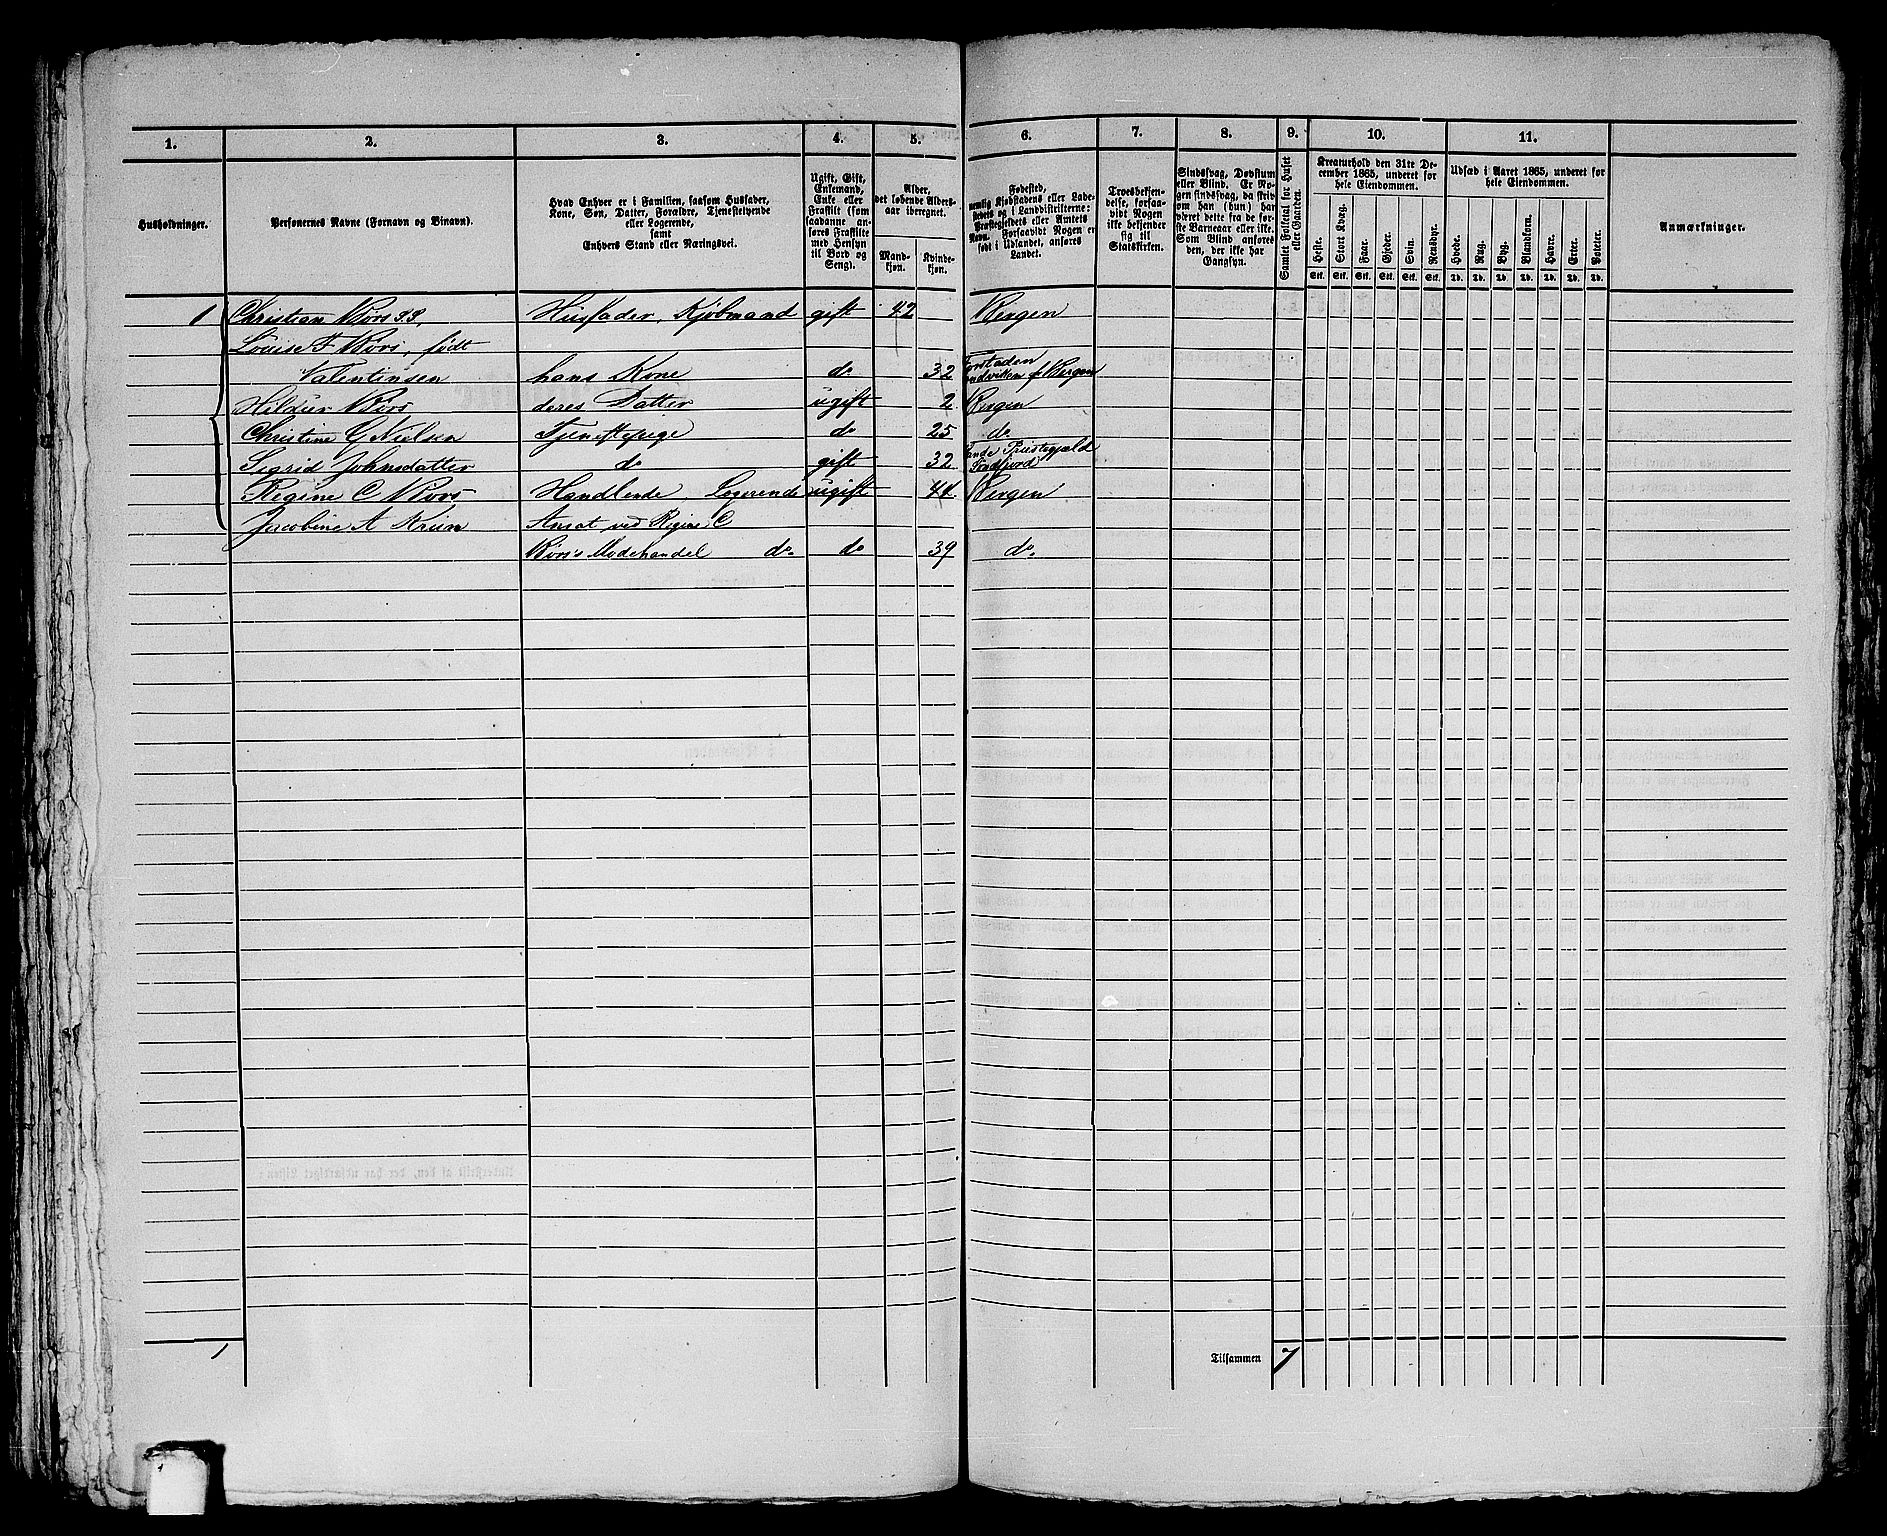 1. 2. 3. 4. 5. 6. 7. 8. 9. 10. 11.
Husholdninger.
Personernes Navne (Fornavn og Binavn).
Hvad Enhver er i Familien, saasom Husfader,
Kone, Søn, Datter, Forældre, Tjenestetyende
eller Logerende,
samt
Enhvers Stand eller Næringsvei.
Ugift, Gift,
Enkemand,
Enke eller
Fraskilt (som
saadanne an-
føres Fraskilte
med Hensyn
til Bord og
Seng).
Alder,
det løbende Alders-
aar iberegnet.
Mand-
kjøn.
Kvinde-
kjøn.
Fødested,
nemlig Kjøbstadens eller Lade-
stedets og i Landdistrikterne:
Præstegjeldets eller Amtets
Navn. Forsaavidt Nogen er
født i Udlandet, anføres
Landet.
Troesbekjen-
delse, forsaa-
vidt Nogen
ikke bekjender
sig til
Statskirken.
Sindssvag, Døvstum
eller Blind. Er No-
gen sindssvag, da skriv
om han (hun) har
været dette fra de før-
ste Barneaar eller ikke.
Som Blind anføres
den, der ikke har
Gangsyn.
Samlet Folketal for Huset
eller Gaarden.
Kreaturhold den 31te De-
cember 1865, underet for
hele Eiendommen.
Heste. Stort Kvæg. Faar. Gjeder. Svin. Rensdyr.
Stk. Stk. Stk. Stk. Stk. Stk.
Udsæd i Aaret 1865, underet for
hele Eiendommen.
Hvede. Rug. Byg. Blandkorn. Havre. Erter. Poteter.
Td. Td. Td. Td. Td. Td. Td.
Anmærkninger.
1 Christian Børs S.S., Husfader, Kjøbmand gift 42 Bergen
Louise F Børs, født
Valentinsen hans Kone do 32 Forstaden Sandviken f Bergen
Hildur Børs deres Datter ugift 2 Bergen
Christine G Nielsen Tjenestepige do 25 do
Sigrid Johnsdatter do gift 32 Præstegjæld Søndfjord
Regine C Børs Handlende, Logerende ugift 44 Bergen
Jacobine A Krün Ansat ved Regine C
Børs's Modehandel do. do 39 do.
1 Tilsammen 7